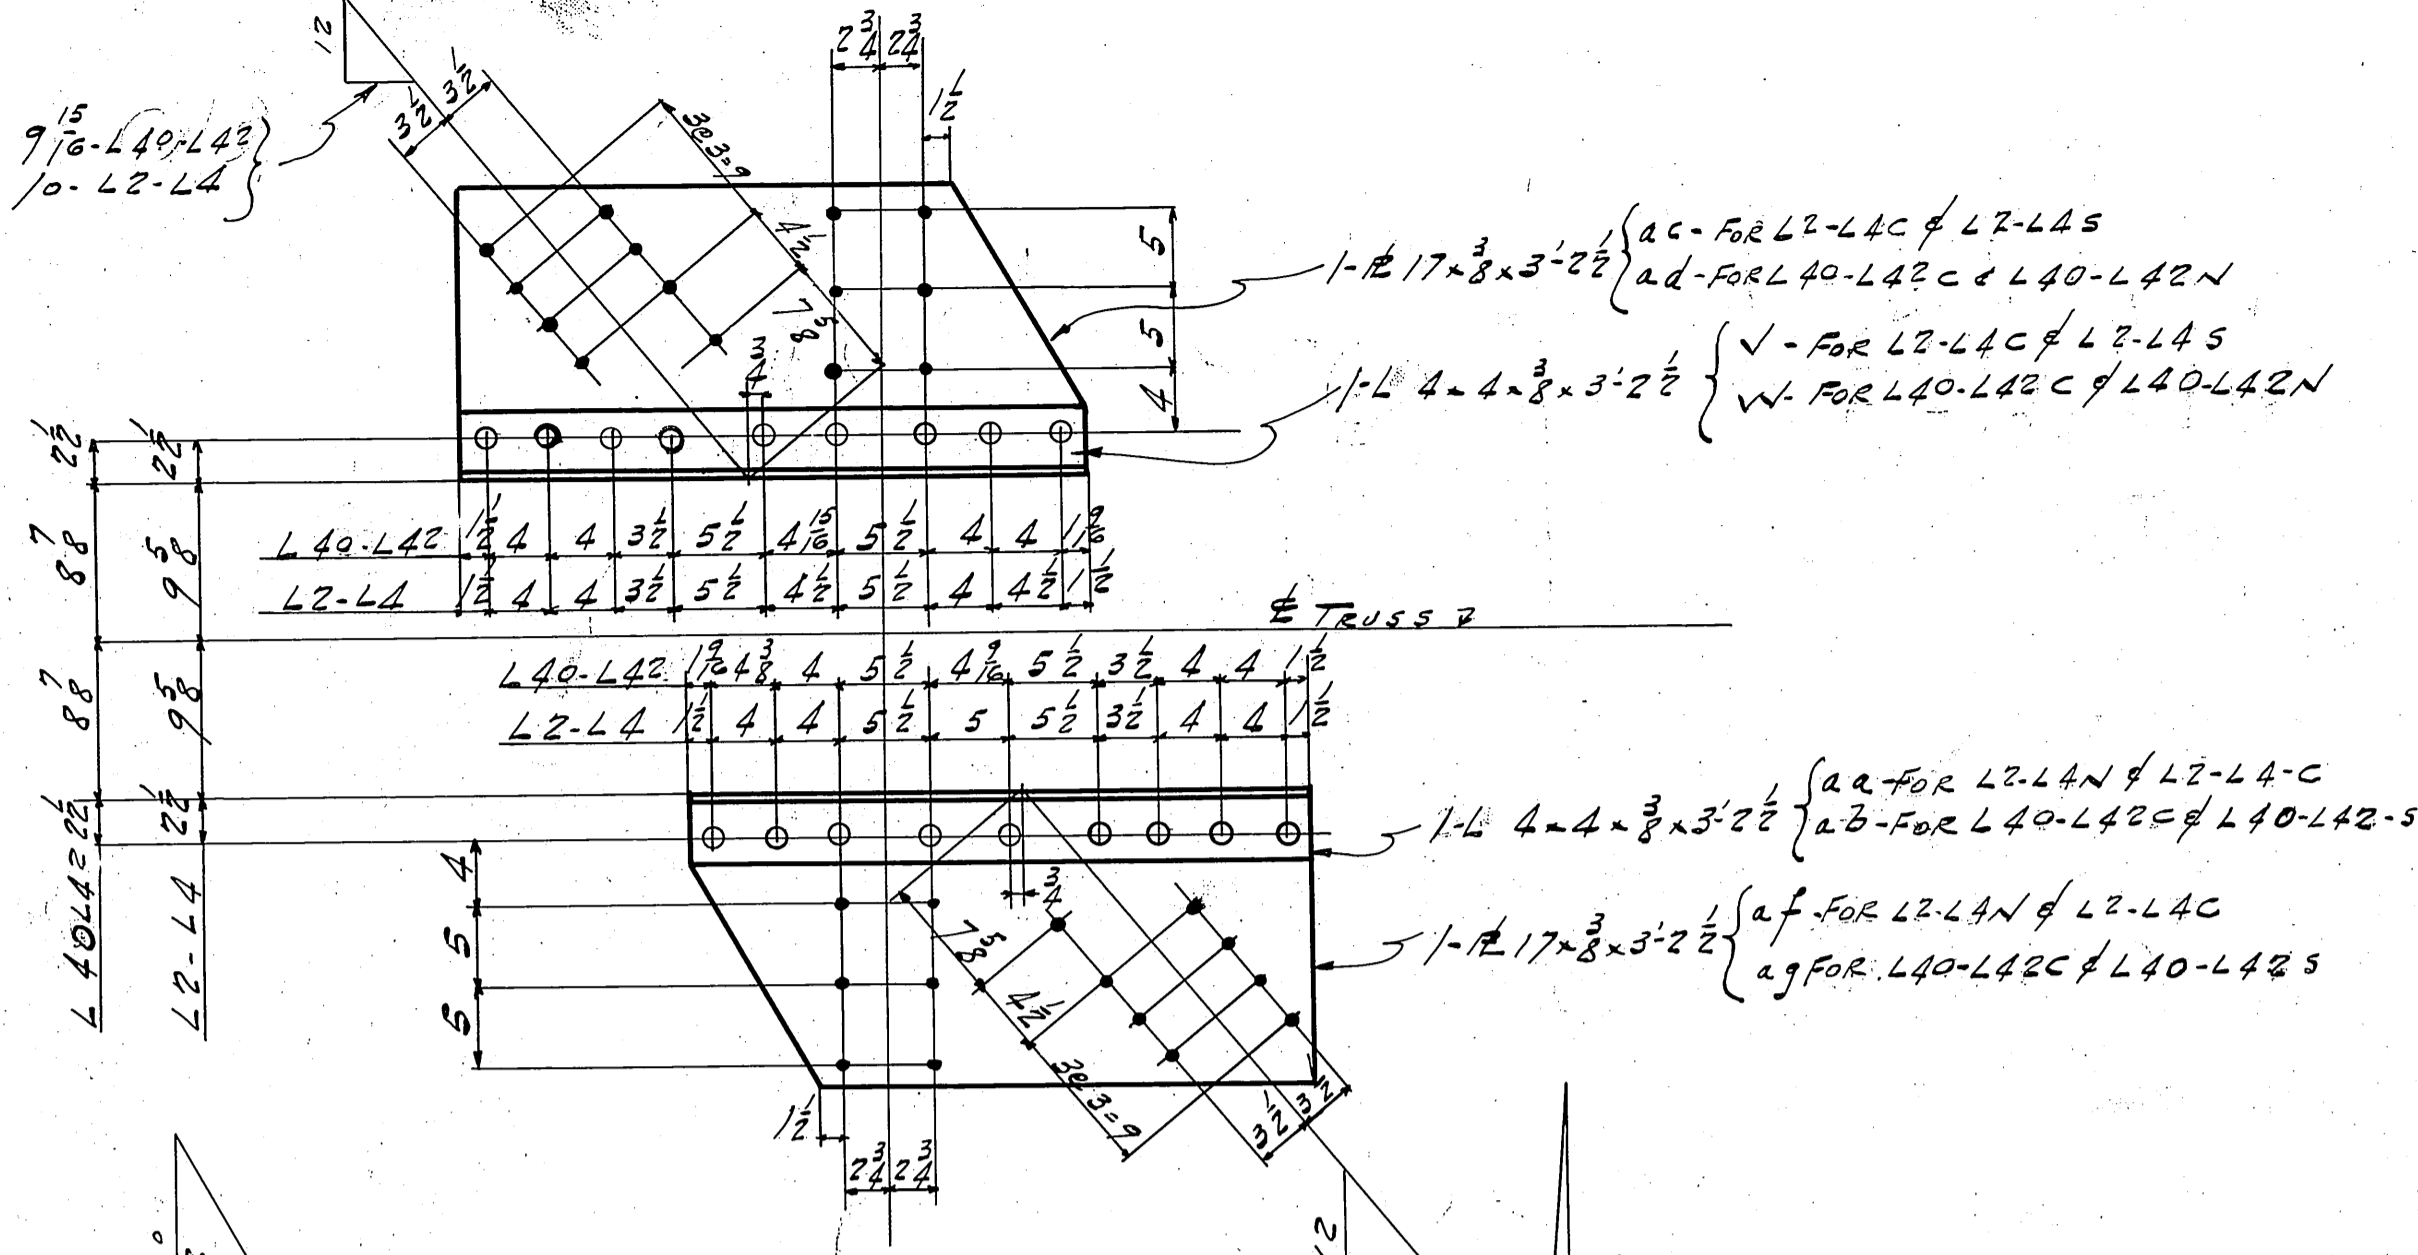 12
2 3/4 2 3/4
1 1/2
3 1/2 3 1/2
9 15/16-L40-L42
10-L2-L4
3@3=9
4 1/2
7 5/8
3/4
5
5
4
1-PL 17×3/8×3'-2 1/2
ac-FOR L2-L4C & L2-L4S
ad-FOR L40-L42C & L40-L42N
1-L 4×4×3/8×3'-2 1/2
V-FOR L2-L4C & L2-L4S
W-FOR L40-L42C & L40-L42N
2 1/2 2 1/2
8 7/8 9 5/8
L40-L42 1 1/2 4 4 3 1/2 5 1/2 4 15/16 5 1/2 4 4 1 9/16
L2-L4 1 1/2 4 4 3 1/2 5 1/2 4 1/2 5 1/2 4 4 1/2 1 1/2
℄ TRUSS
L40-L42 1 9/16 4 3/8 4 5 1/2 4 9/16 5 1/2 3 1/2 4 4 1 1/2
L2-L4 1 1/2 4 4 5 1/2 5 5 1/2 3 1/2 4 4 1 1/2
8 7/8 9 5/8
2 1/2 2 1/2
L40L42
L2-L4
4
5
5
3/4
7 5/8
4 1/2
3@3=9
3 1/2 3 1/2
1-L 4×4×3/8×3'-2 1/2
aa-FOR L2-L4N & L2-L4-C
ab-FOR L40-L42C & L40-L42-S
1-PL 17×3/8×3'-2 1/2
af-FOR L2-L4N & L2-L4C
ag FOR L40-L42C & L40-L42S
1 1/2
2 3/4 2 3/4
12